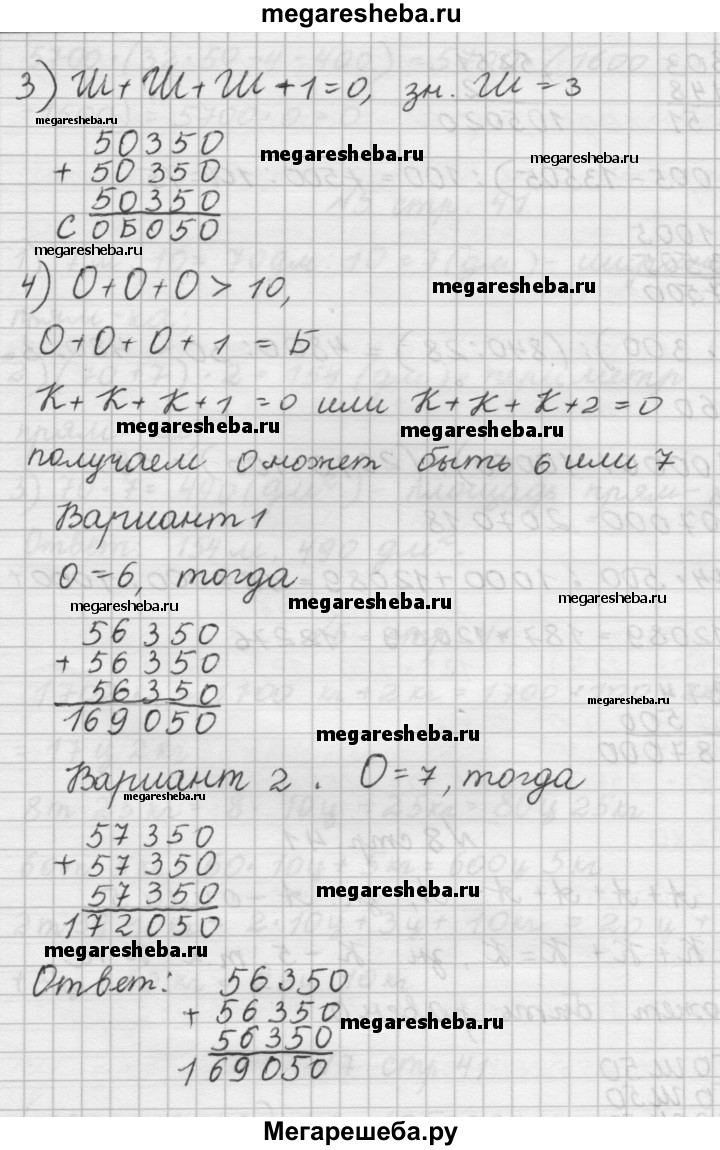 megaresheba.ru
3) Ш+Ш+Ш+1=0, зн. Ш=3
megaresheba.ru
50350
megaresheba.ru
megaresheba.ru
+ 50350
50350
С0Б050
megaresheba.ru
4) О+О+О>10,
megaresheba.ru
О+О+О+1=Б
К+К+К+1=0 или К+К+К+2=0
megaresheba.ru
megaresheba.ru
получаем О может быть 6 или 7
Вариант 1
О=6, тогда
megaresheba.ru
megaresheba.ru
megaresheba.ru
56350
+ 56350
56350
megaresheba.ru
169050
megaresheba.ru
Вариант 2. О=7, тогда
megaresheba.ru
57350
+ 57350
57350
megaresheba.ru
172050
megaresheba.ru
Ответ: 56350
+ 56350
megaresheba.ru
56350
169050
Мегарешеба.ру